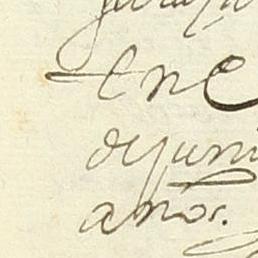 ene
de juni
años.